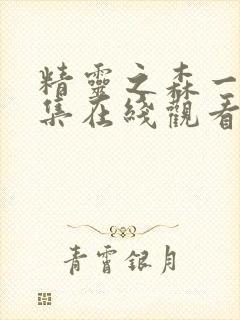 精靈之森一
集在綫觀看
青霄銀月